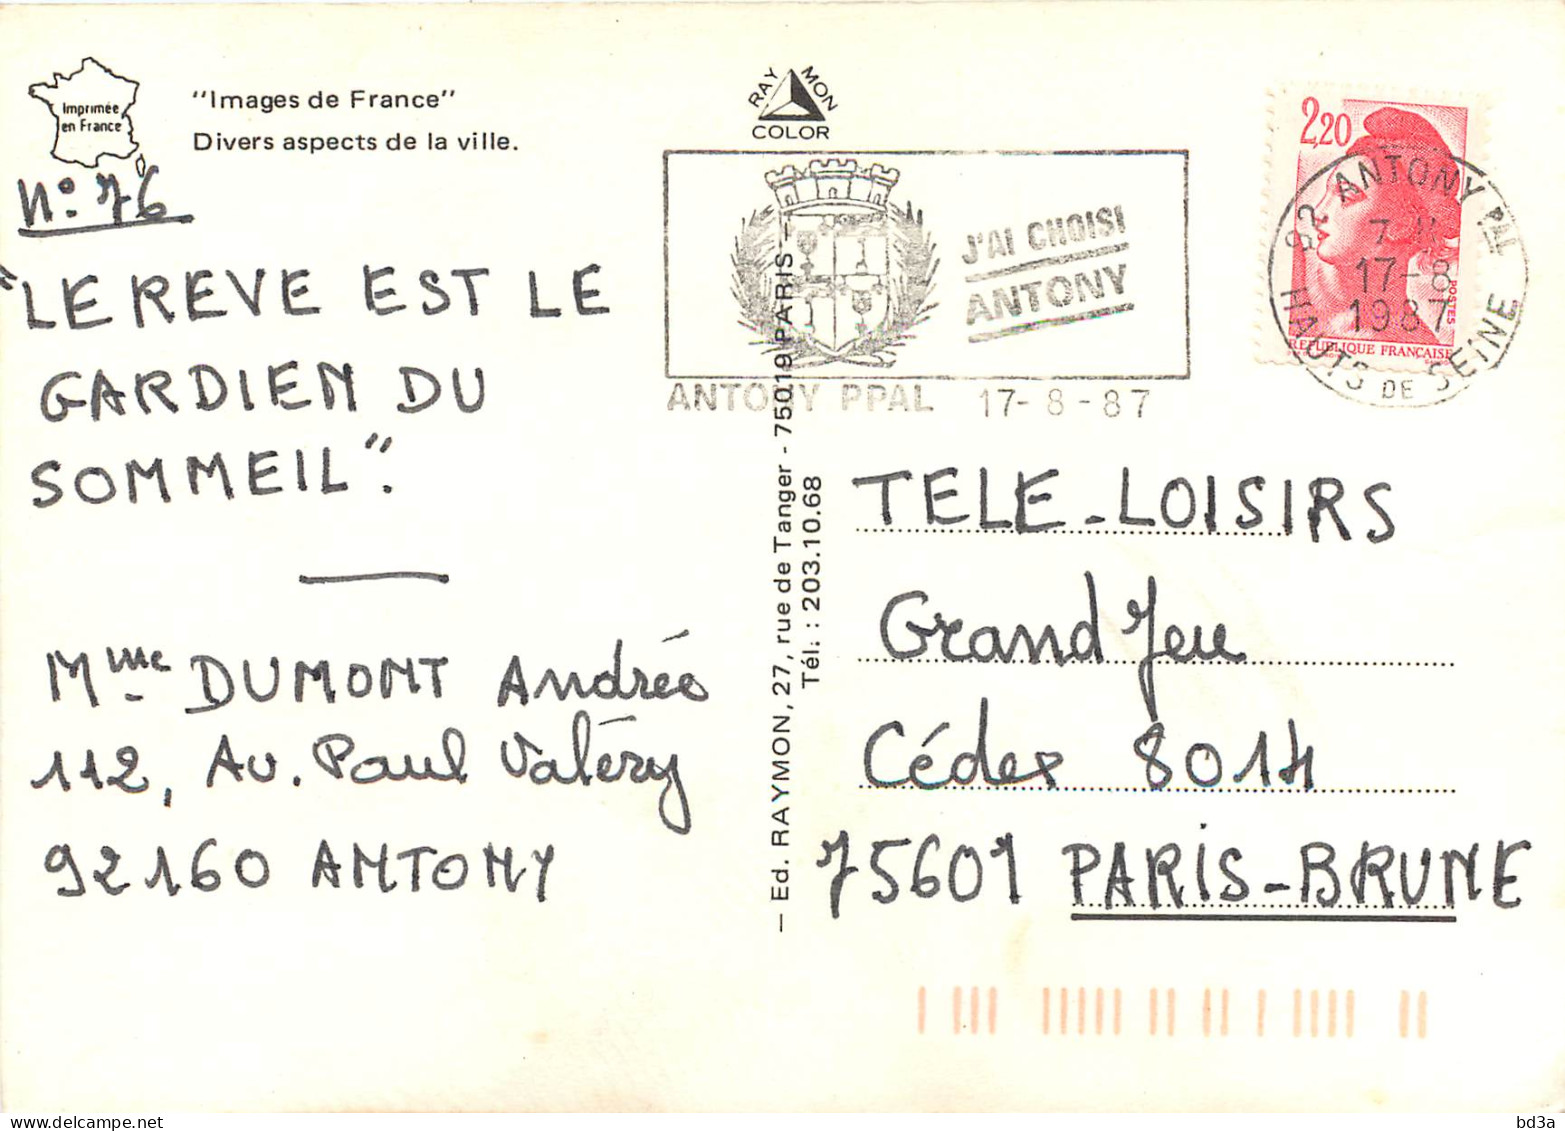 Imprimée
en France
"Images de France"
Divers aspects de la ville.
N° 76
"LE REVE EST LE
GARDIEN DU
SOMMEIL".
Mme DUMONT Andrée
112, Av. Paul Valéry
92160 ANTONY
RAY MON
COLOR
J'AI CHOISI
ANTONY
ANTONY PPAL 17-8-87
— Ed. RAYMON, 27, rue de Tanger - 75019 PARIS —
Tél. : 203.10.68
2,20
POSTES
REPUBLIQUE FRANÇAISE
92 ANTONY PAL
17-8
1987
HAUTS DE SEINE
TELE-LOISIRS
Grand Jeu
Cédex 8014
75601 PARIS-BRUNE
bd3a